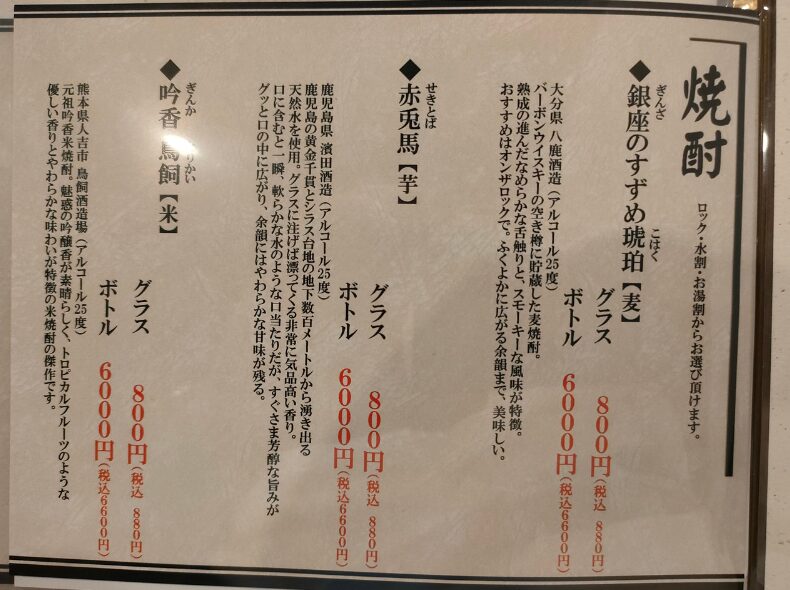 焼酎
ロック・水割・お湯割からお選び頂けます。
◆銀座のすずめ琥珀【麦】
ぎんざ
こはく
グラス 800円(税込 880円)
ボトル 6000円(税込6600円)
大分県 八鹿酒造(アルコール25度)
バーボンウイスキーの空き樽に貯蔵した麦焼酎。
熟成の進んだなめらかな舌触りと、スモーキーな風味が特徴。
おすすめはオンザロックで。ふくよかに広がる余韻まで、美味しい。
◆赤兎馬【芋】
せきとば
グラス 800円(税込 880円)
ボトル 6000円(税込6600円)
鹿児島県 濵田酒造(アルコール25度)
鹿児島の黄金千貫とシラス台地の地下数百メートルから湧き出る
天然水を使用。グラスに注げば漂ってくる非常に気品高い香り。
口に含むと一瞬、軟らかな水のような口当たりだが、すぐさま芳醇な旨みが
グッと口の中に広がり、余韻にはやわらかな甘味が残る。
◆吟香 鳥飼【米】
ぎんか
りかい
グラス 800円(税込 880円)
ボトル 6000円(税込6600円)
熊本県人吉市 鳥飼酒造場(アルコール25度)
元祖吟香米焼酎。魅惑の吟醸香が素晴らしく、トロピカルフルーツのような
優しい香りとやわらかな味わいが特徴の米焼酎の傑作です。